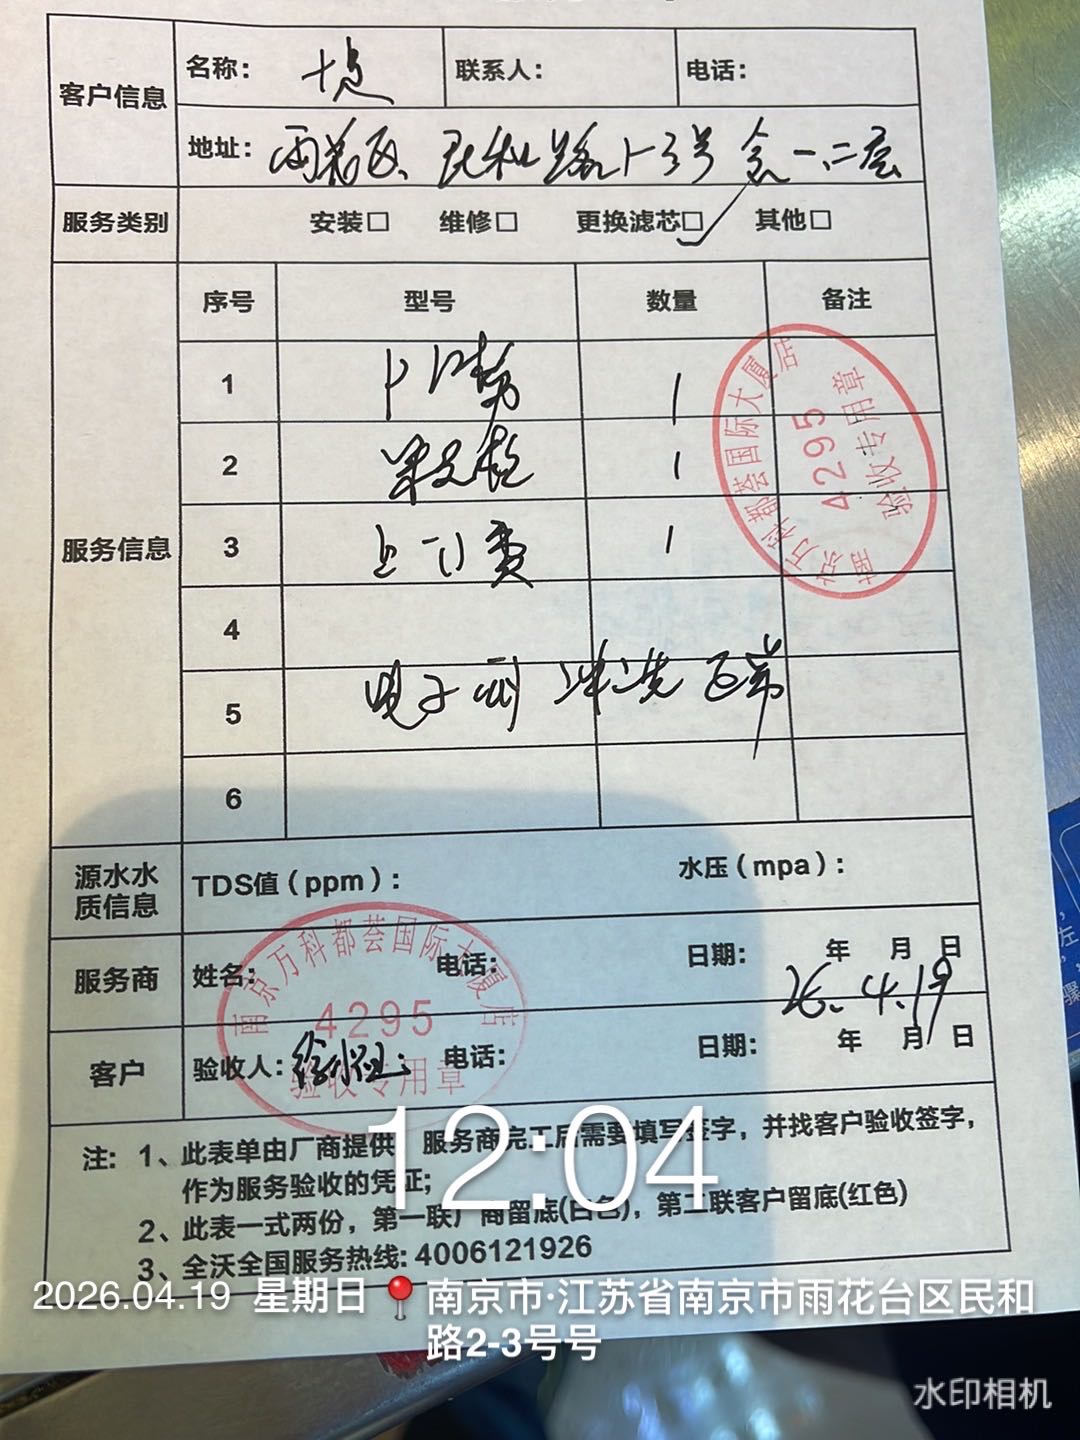 客户信息
名称：
联系人：
电话：
地址： 民和路1-3号 一、二层
服务类别
安装□ 维修□ 更换滤芯□ 其他□
服务信息
序号 型号 数量 备注
1 1
2 1
3 上门费 1
4
5 电子 冲洗正常
6
南京万科都荟国际大厦店
4295
验收专用章
源水水质信息
TDS值（ppm）：
水压（mpa）：
服务商
姓名：
电话：
日期： 年 月 日
26.4.19
客户
验收人：
电话：
日期： 年 月 日
南京万科都荟国际大厦店
4295
验收专用章
注：1、此表单由厂商提供 服务商完工后需要填写签字，并找客户验收签字，
作为服务验收的凭证；
2、此表一式两份，第一联厂商留底(白色)，第二联客户留底(红色)
3、全沃全国服务热线：4006121926
12:04
2026.04.19 星期日 南京市·江苏省南京市雨花台区民和
路2-3号号
水印相机
左，
骤